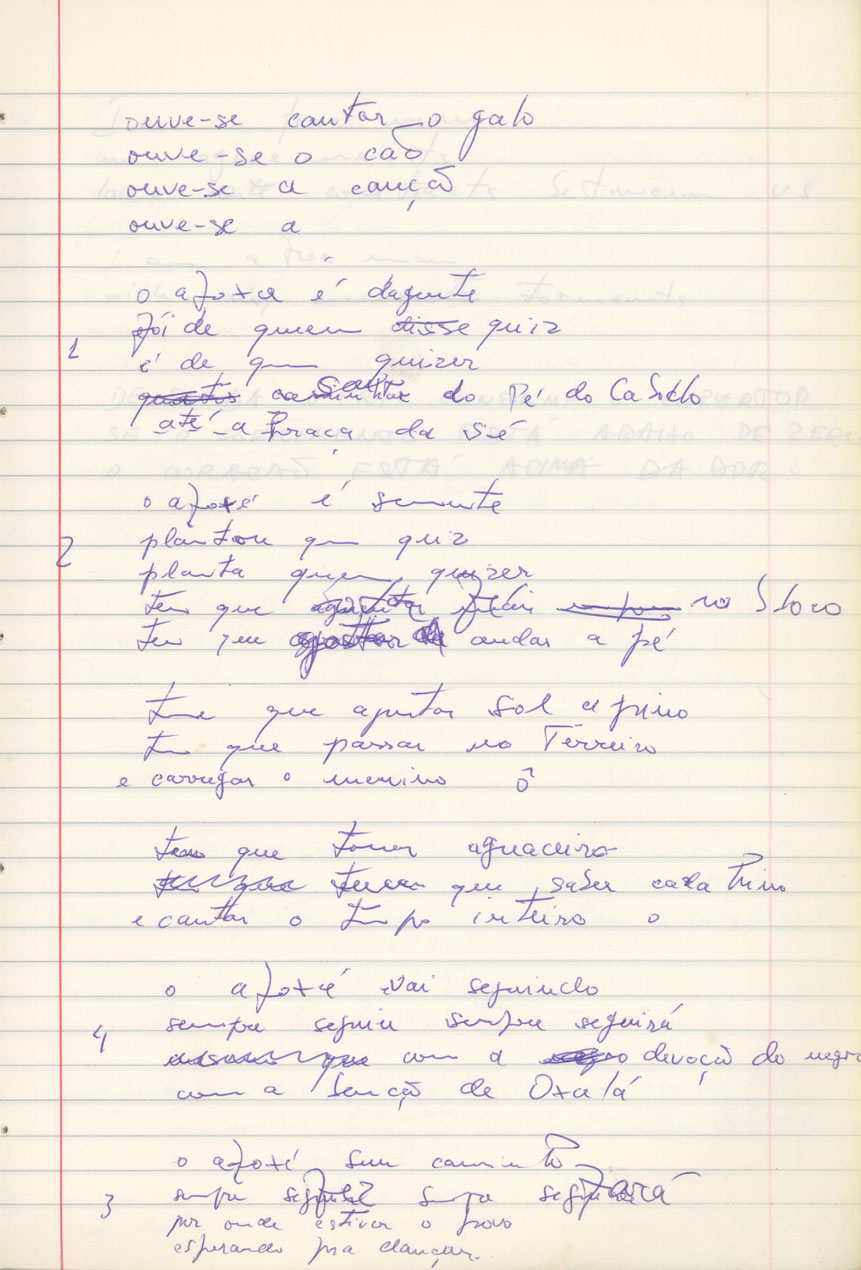 ouve-se cantar o galo
ouve-se o cão
ouve-se a canção
ouve-se a
o afoxé é dagente
1 foi de quem disse quiz
é de quem quizer
sair do Pé do Castelo
até a Praça da Sé
o afoxé é semente
2 plantou quem quiz
planta quem quizer
tem que no bloco
tem que andar a pé
tem que aguentar sol a pino
tem que passar no Terreiro
e carregar o menino ô
tem que tomar aguaceiro
tem que saber cada hino
e cantar o tempo inteiro o
o afoxé vai seguindo
sempre seguiu sempre seguirá
4 com a devoção do negro
com a benção de Oxalá
o afoxé seu caminho
3 sempre fez sempre fará
por onde estiver o povo
esperando pra dançar.
DE
SE ESTÁ ABAIXO DE ZERO
O CORAÇÃO ESTÁ ACIMA DA DOR.